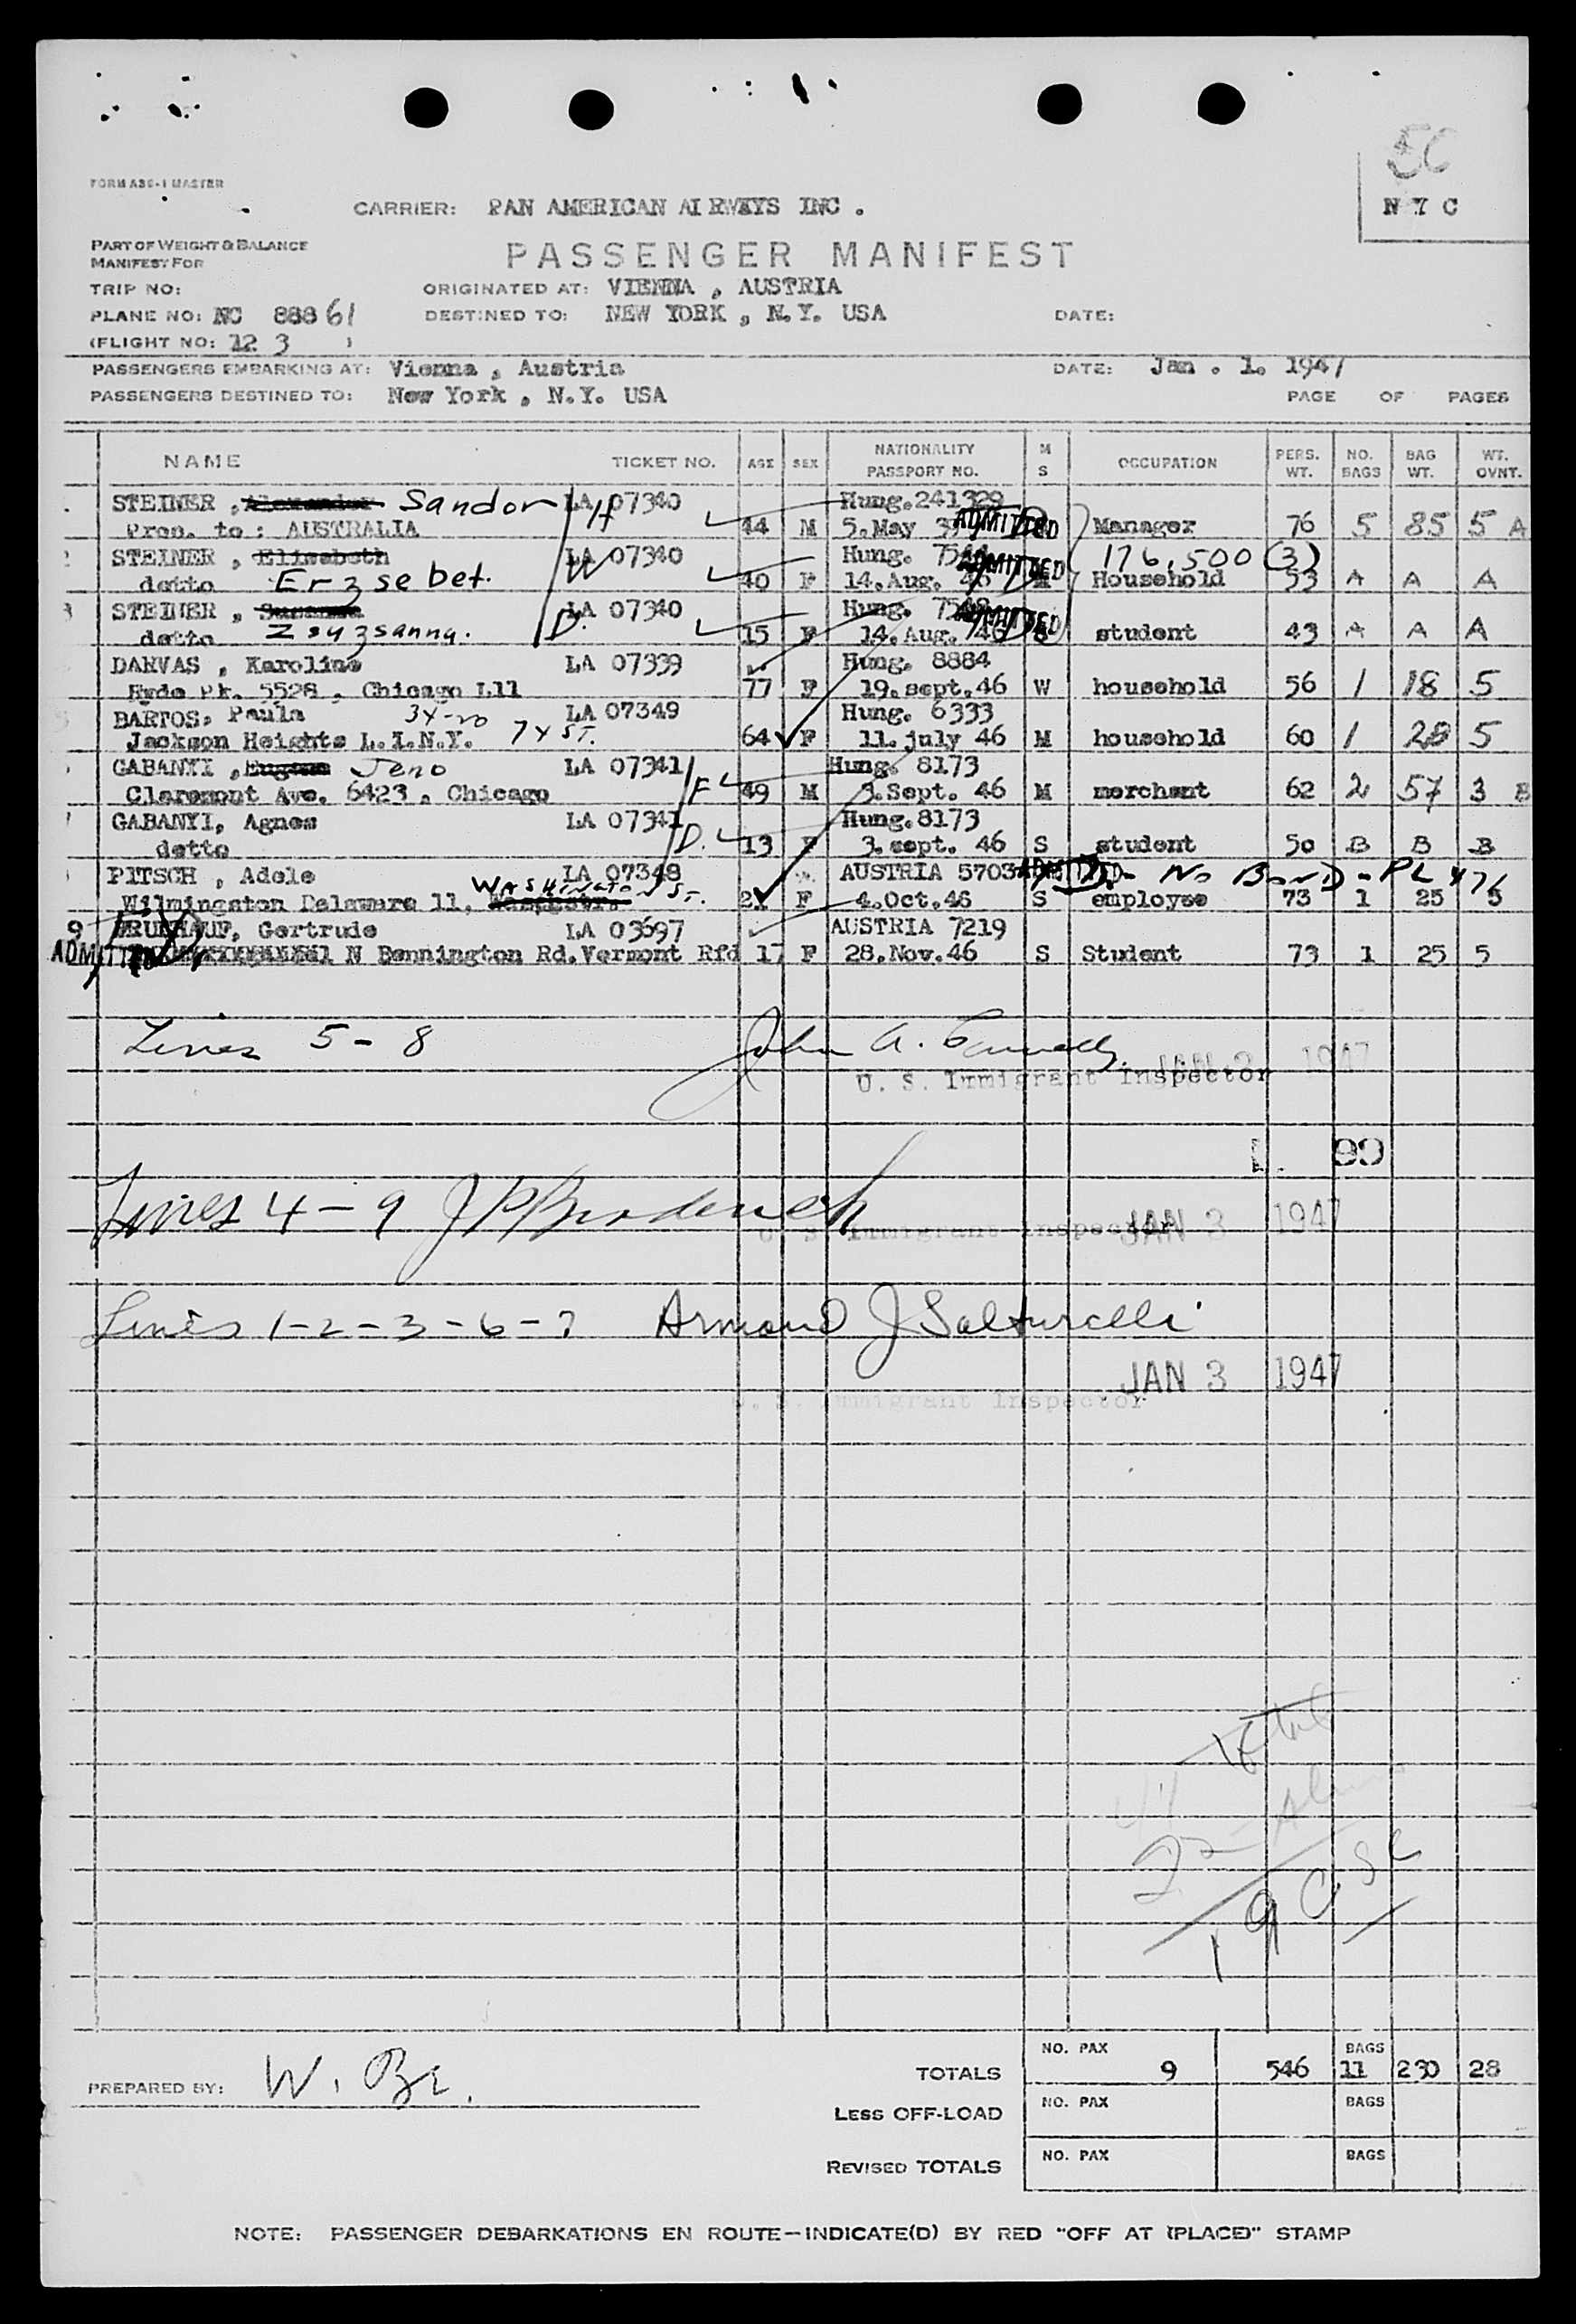 5C
N Y C
FORM A36-1 MASTER
CARRIER: PAN AMERICAN AIRWAYS INC .
PART OF WEIGHT & BALANCE
MANIFEST FOR
PASSENGER MANIFEST
TRIP NO:
ORIGINATED AT: VIENNA , AUSTRIA
PLANE NO: NC 88861
DESTINED TO: NEW YORK , N.Y. USA
DATE:
(FLIGHT NO: 12 3 )
PASSENGERS EMBARKING AT: Vienna , Austria
DATE: Jan . 1. 1947
PASSENGERS DESTINED TO: New York , N.Y. USA
PAGE OF PAGES
NAME TICKET NO. AGE SEX NATIONALITY PASSPORT NO. M S OCCUPATION PERS. WT. NO. BAGS BAG WT. WT. OVNT.
STEINER , Alexander Sandor LA 07340 H Hung. 241329
Pros. to : AUSTRALIA 44 M 5. May 39 ADMITTED Manager 76 5 85 5 A
2 STEINER , Elisabeth LA 07340 W Hung. ADMITTED 176,500 (3)
detto Erzsebet. 40 F 14. Aug. 46 M Household 53 A A A
3 STEINER , LA 07340 D. Hung. ADMITTED
detto Zsuzsanna. 15 F 14. Aug. 46 S student 43 A A A
DARVAS , Karoline LA 07339 Hung. 8884
Hyde Pk. 5528 , Chicago Lll 77 F 19. sept. 46 W household 56 1 18 5
5 BARTOS, Paula 34-20 LA 07349 Hung. 6333
Jackson Heights L.I.N.Y. 74 ST. 64 F 11. july 46 M household 60 1 28 5
GABANYI , Eugene Jeno LA 07341 F Hung. 8173
Claremont Ave. 6423 , Chicago 49 M 3. Sept. 46 M merchant 62 2 57 3 B
7 GABANYI, Agnes LA 07341 D. Hung. 8173
detto 13 F 3. sept. 46 S student 50 B B B
PITSCH , Adele LA 07348 AUSTRIA 5703 ADMITTED - No BonD - PL 471
Wilmingston Delaware 11, WASHINGTON ST. 21 F 4. Oct. 46 S employee 73 1 25 5
9 Gertrude LA 03697 AUSTRIA 7219
ADMITTED N Bennington Rd. Vermont Rfd 17 F 28. Nov. 46 S Student 73 1 25 5
Lines 5 - 8 John A.
U. S. Immigrant Inspector JAN 3 1947
99
Lines 4 - 9 J P Broderick
U. S. Immigrant Inspector JAN 3 1947
Lines 1-2-3-6-7 Armand J Salturelli
JAN 3 1947
U. S. Immigrant Inspector
22 -
19 USC
PREPARED BY: W.
TOTALS NO. PAX 9 546 BAGS 11 230 28
LESS OFF-LOAD NO. PAX BAGS
REVISED TOTALS NO. PAX BAGS
NOTE: PASSENGER DEBARKATIONS EN ROUTE—INDICATE(D) BY RED "OFF AT (PLACE)" STAMP